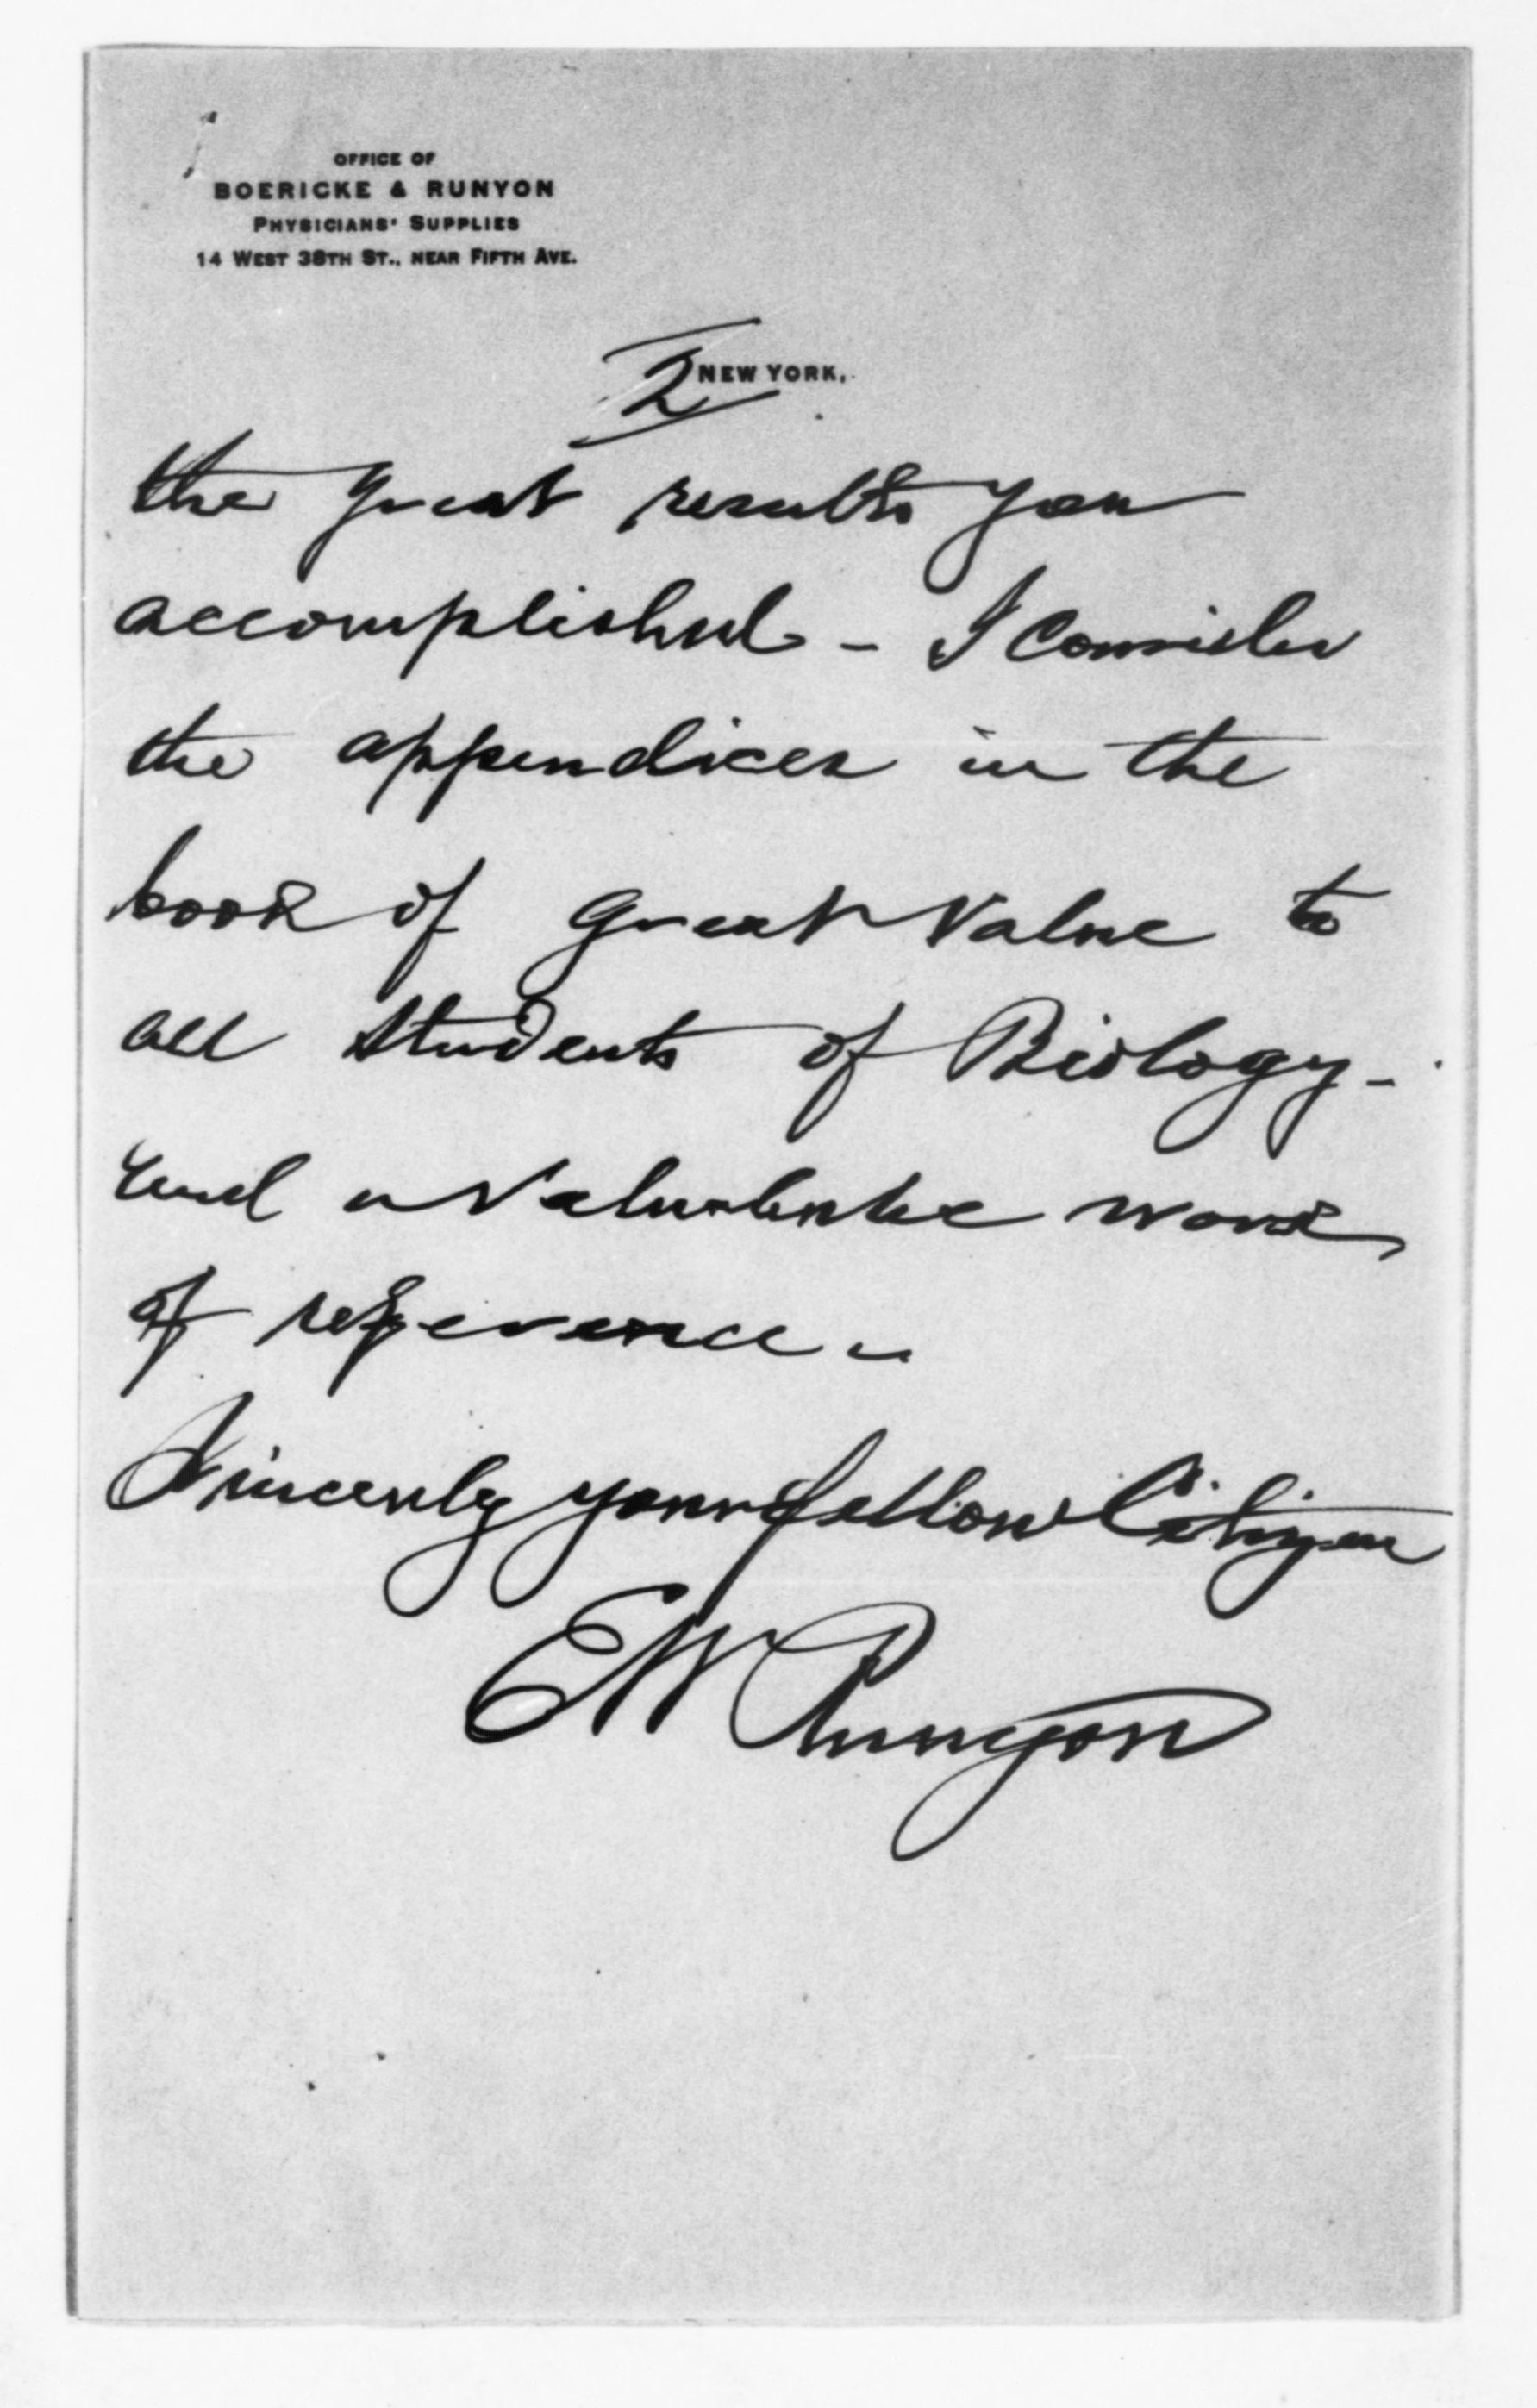 OFFICE OF
BOERICKE & RUNYON
PHYSICIANS' SUPPLIES
14 WEST 38TH ST., NEAR FIFTH AVE.
2 NEW YORK,
the great results you
accomplished - I Consider
the appendices in the
book of great value to
all students of Biology -
and a Valuable work
of reference -
Sincerely your fellow Citizen
EW Runyon